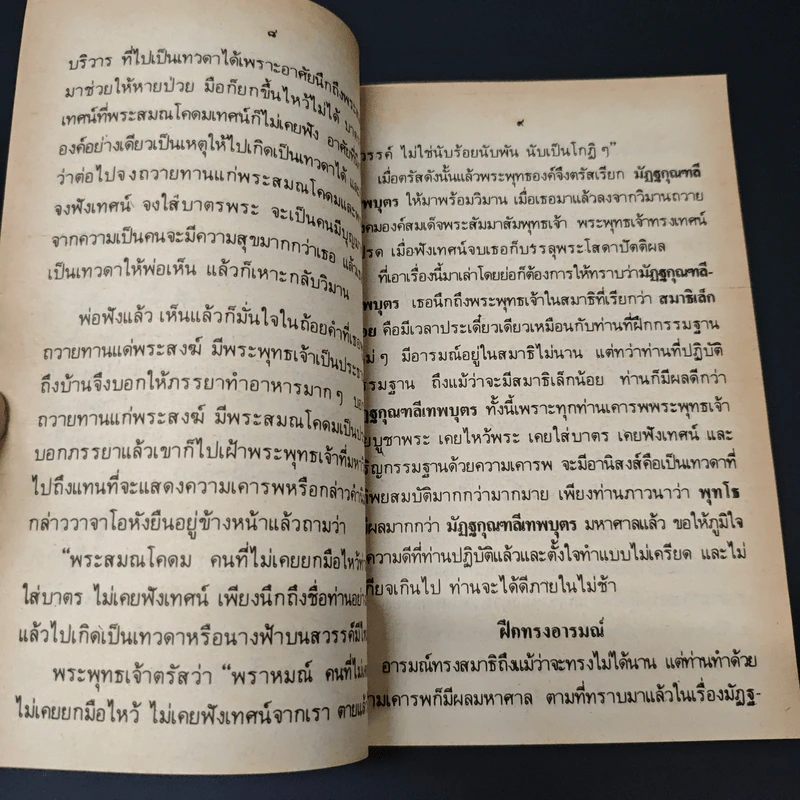 ๘
บริวาร ที่ไปเป็นเทวดาได้เพราะอาศัยนึกถึงพระ
มาช่วยให้หายป่วย มือก็ยกขึ้นไหว้ไม่ได้
เทศน์ที่พระสมณโคดมเทศน์ก็ไม่เคยฟัง อาศัย
องค์อย่างเดียวเป็นเหตุให้ไปเกิดเป็นเทวดาได้
ว่าต่อไปจงถวายทานแก่พระสมณโคดมและ
จงฟังเทศน์ จงใส่บาตรพระ จะเป็นคนมีบุญ
จากความเป็นคนจะมีความสุขมากกว่าเธอ แล้ว
เป็นเทวดาให้พ่อเห็น แล้วก็เหาะกลับวิมาน
พ่อฟังแล้ว เห็นแล้วก็มั่นใจในถ้อยคำที่
ถวายทานแด่พระสงฆ์ มีพระพุทธเจ้าเป็นประ
ถึงบ้านจึงบอกให้ภรรยาทำอาหารมาก ๆ
ถวายทานแก่พระสงฆ์ มีพระสมณโคดมเป็น
บอกภรรยาแล้วเขาก็ไปเฝ้าพระพุทธเจ้าที่
ไปถึงแทนที่จะแสดงความเคารพหรือกล่าว
กล่าววาจาโอหังยืนอยู่ข้างหน้าแล้วถามว่า
“พระสมณโคดม คนที่ไม่เคยยกมือไหว้
ใส่บาตร ไม่เคยฟังเทศน์ เพียงนึกถึงชื่อท่าน
แล้วไปเกิดเป็นเทวดาหรือนางฟ้าบนสวรรค์มี
พระพุทธเจ้าตรัสว่า “พราหมณ์ คนที่ไม่
ไม่เคยยกมือไหว้ ไม่เคยฟังเทศน์จากเรา ตายแล้
๙
วรรค์ ไม่ใช่นับร้อยนับพัน นับเป็นโกฏิ ๆ”
เมื่อตรัสดังนั้นแล้วพระพุทธองค์จึงตรัสเรียก มัฏฐกุณฑลี
พบุตร ให้มาพร้อมวิมาน เมื่อเธอมาแล้วลงจากวิมานถวาย
คมองค์สมเด็จพระสัมมาสัมพุทธเจ้า พระพุทธเจ้าทรงเทศน์
ปรด เมื่อฟังเทศน์จบเธอก็บรรลุพระโสดาปัตติผล
ที่เอาเรื่องนี้มาเล่าโดยย่อก็ต้องการให้ทราบว่ามัฏฐกุณฑลี-
พบุตร เธอนึกถึงพระพุทธเจ้าในสมาธิที่เรียกว่า สมาธิเล็ก
อย คือมีเวลาประเดี๋ยวเดียวเหมือนกับท่านที่ฝึกกรรมฐาน
ม่ ๆ มีอารมณ์อยู่ในสมาธิไม่นาน แต่ทว่าท่านที่ปฏิบัติ
รมฐาน ถึงแม้ว่าจะมีสมาธิเล็กน้อย ท่านก็มีผลดีกว่า
ฏฐกุณฑลีเทพบุตร ทั้งนี้เพราะทุกท่านเคารพพระพุทธเจ้า
ยบูชาพระ เคยไหว้พระ เคยใส่บาตร เคยฟังเทศน์ และ
ริญกรรมฐานด้วยความเคารพ จะมีอานิสงส์คือเป็นเทวดาที่
ทิพยสมบัติมากกว่ามากมาย เพียงท่านภาวนาว่า พุทโธ
ผลมากกว่า มัฏฐกุณฑลีเทพบุตร มหาศาลแล้ว ขอให้ภูมิใจ
ความดีที่ท่านปฏิบัติแล้วและตั้งใจทำแบบไม่เครียด และไม่
กียจเกินไป ท่านจะได้ดีภายในไม่ช้า
ฝึกทรงอารมณ์
อารมณ์ทรงสมาธิถึงแม้ว่าจะทรงไม่ได้นาน แต่ท่านทำด้วย
ามเคารพก็มีผลมหาศาล ตามที่ทราบมาแล้วในเรื่องมัฏฐ-